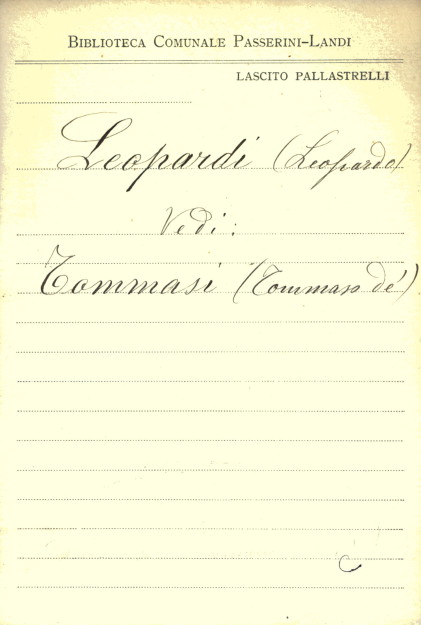 BIBLIOTECA COMUNALE PASSERINI-LANDI
LASCITO PALLASTRELLI
Leopardi (Leopardo)
Vedi:
Tommasi (Tommaso de')
C